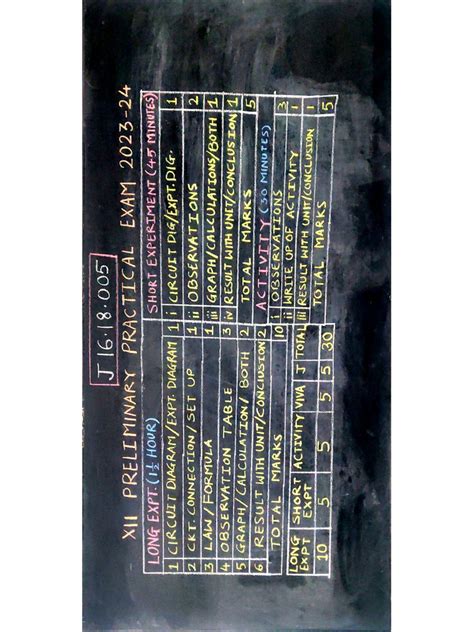 J 16.18.005
XII PRELIMINARY PRACTICAL EXAM 2023-24
LONG EXPT. (1½ HOUR)
1 CIRCUIT DIAGRAM/EXPT. DIAGRAM 1
2 CKT. CONNECTION/SET UP 1
3 LAW/FORMULA 1
4 OBSERVATION TABLE 3
5 GRAPH/CALCULATION/BOTH 2
6 RESULT WITH UNIT/CONCLUSION 2
TOTAL MARKS 10
SHORT EXPERIMENT (45 MINUTES)
i CIRCUIT DIG/EXPT. DIG. 1
ii OBSERVATIONS 2
iii GRAPH/CALCULATIONS/BOTH 1
iv RESULT WITH UNIT/CONCLUSION 1
TOTAL MARKS 5
ACTIVITY (30 MINUTES)
i OBSERVATIONS 3
ii WRITE UP OF ACTIVITY 1
iii RESULT WITH UNIT/CONCLUSION 1
TOTAL MARKS 5
LONG EXPT SHORT EXPT ACTIVITY VIVA J TOTAL
10 5 5 5 5 30